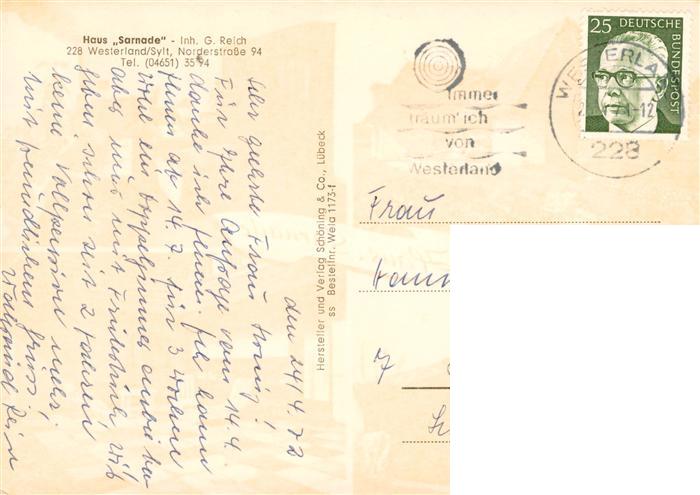 Haus „Sarnade" - Inh. G. Reich
228 Westerland/Sylt, Norderstraße 94
Tel. (04651) 35 94
den 24/4. 72
Sehr geehrte Frau König!
Für Ihre Anfrage vom 14. 4.
danke ich Ihnen. Ich kann
Ihnen ab 14. 7. für 3 Wochen
ein Doppelzimmer anbieten
aber nur mit Frühstück. Wir
geben schon seit 2 Jahren
keine Vollpension mehr.
Mit freundlichem Gruss
Hersteller und Verlag Schöning & Co., Lübeck
ss Bestellnr. Wela 1173-f
Imme
träum' ich
von
Westerland
WESTERLA
228
25 DEUTSCHE
BUNDESPOST
Frau
7